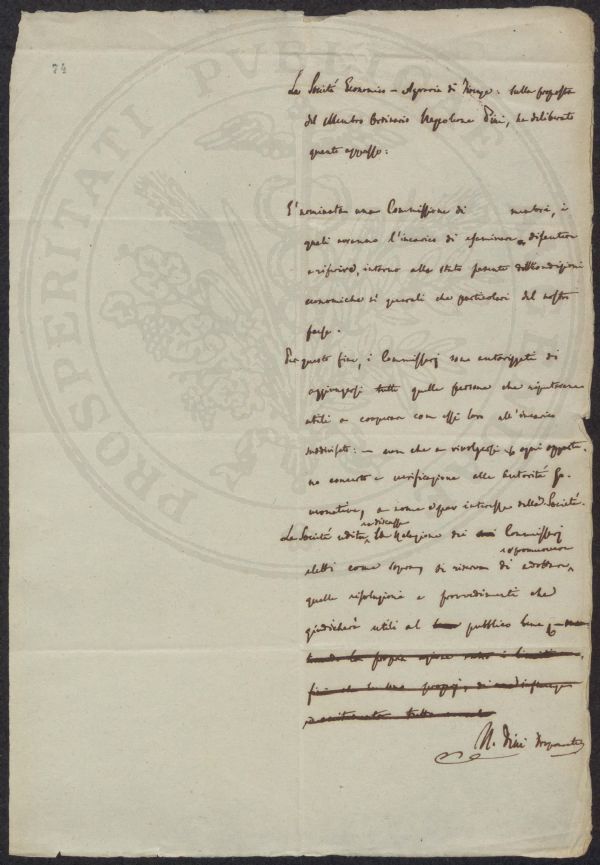 74
La Società Economico-Agraria di : sulla proposta
del Membro Ordinario Napoleone Pini, ha deliberato
quanto appresso:
E' nominata una Commissione di membri, i
quali avranno l'incarico di esaminare, discutere
e riferire, intorno allo stato presente delle condizioni
economiche sì generali che particolari del nostro
paese.
Per questo fine, i Commissarj sono autorizzati di
aggiungersi tutte quelle persone che reputeranno
utili a cooperare con essi loro all'incarico
: — non che a rivolgersi ogni
no concerto e verificazione alle Autorità Go-
vernative, a nome e per interesse della Società.
La Società udita la Relazione dei Commissarj
eletti come sopra, si riserva di adottare
quelle risoluzioni e provvedimenti che
giudicherà utili al pubblico bene
N. Pini
PROSPERITATI PVBLICAE